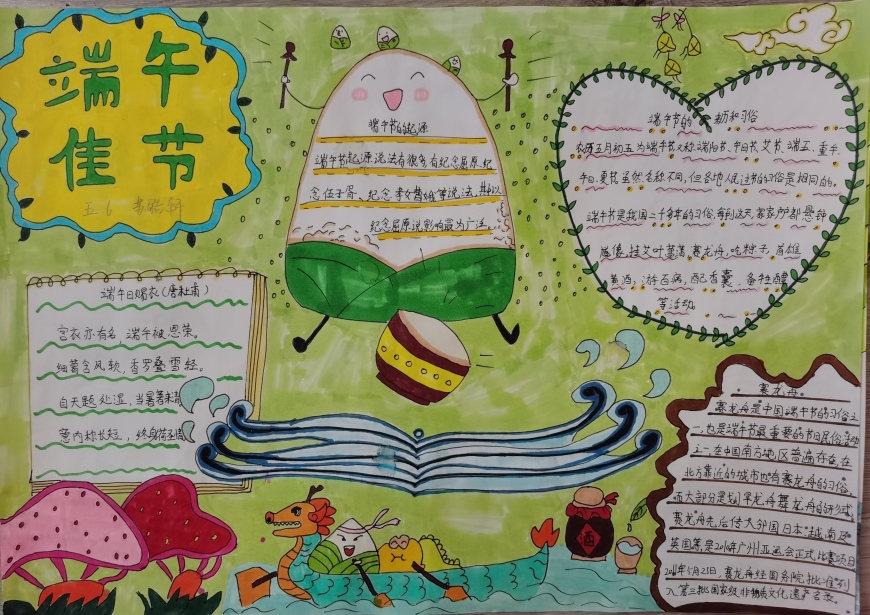 端午
佳节
五6
端午节的起源
端午节起源说法有很多有纪念屈原、纪
念伍子胥、纪念孝女曹娥等说法,其中以
纪念屈原说影响最为广泛。
端午节的 和习俗
农历五月初五为端午节又称端阳节、午日节、艾节、端五、重午、
午日、夏节虽然名称不同,但各地人民过节的习俗是相同的。
端午节是我国二千多年的习俗,每到这天,家家户户都悬钟
馗像,挂艾叶菖蒲,赛龙舟,吃粽子,百雄
黄酒,游百病,配香囊,备牲醴
等活动。
端午日赐衣(唐杜甫)
宫衣亦有名,端午被恩荣。
细葛含风软,香罗叠雪轻。
自天题处湿,当暑著来清
意内称长短,终身荷圣情
赛龙舟。
赛龙舟是中国端午节的习俗之
一,也是端午节最重要的节日民俗活动
之一,在中国南方地区普遍存在,在
北方靠近的城市也有赛龙舟的习俗。
而大部分是划旱龙舟舞龙舟的形式。
赛龙舟先后传入邻国日本、越南及
英国等是2010年广州亚运会正式比赛项目
2011年5月23日,赛龙舟经国务院批准列
入第三批国家级非物质文化遗产名录。
酒